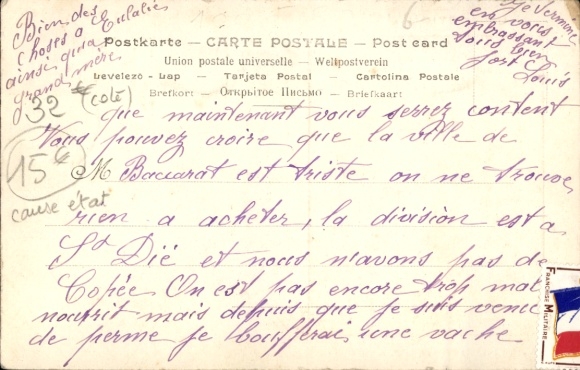 Bien des
choses a Eulalie
ainsi qu'a
grand mère
Je termine
en vous
embrassant
tous bien
fort
Louis
6
Postkarte – CARTE POSTALE – Post card
Union postale universelle – Weltpostverein
Levelezö-Lap – Tarjeta Postal – Cartolina Postale
Brefkort – Открытое Письмо – Briefkaart
32 € (cote)
15 €
cause état
que maintenant vous serrez content
Vous pouvez croire que la ville de
Baccarat est triste on ne trouve
rien a acheter, la division est a
St Dié et nous n'avons pas de
Copée On est pas encore trop mal
nourrit mais depuis que je suis venu
de perme je boufferai une vache
FRANCHISE MILITAIRE